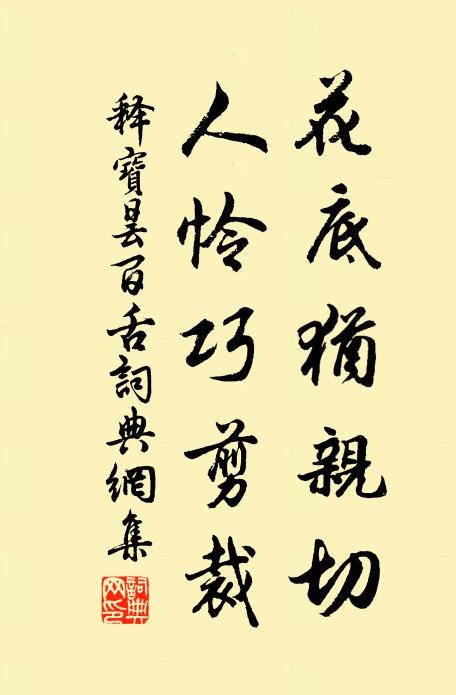 花底猶親切
人怜巧剪裁
释寶曇百舌詞典網集
詞典網印